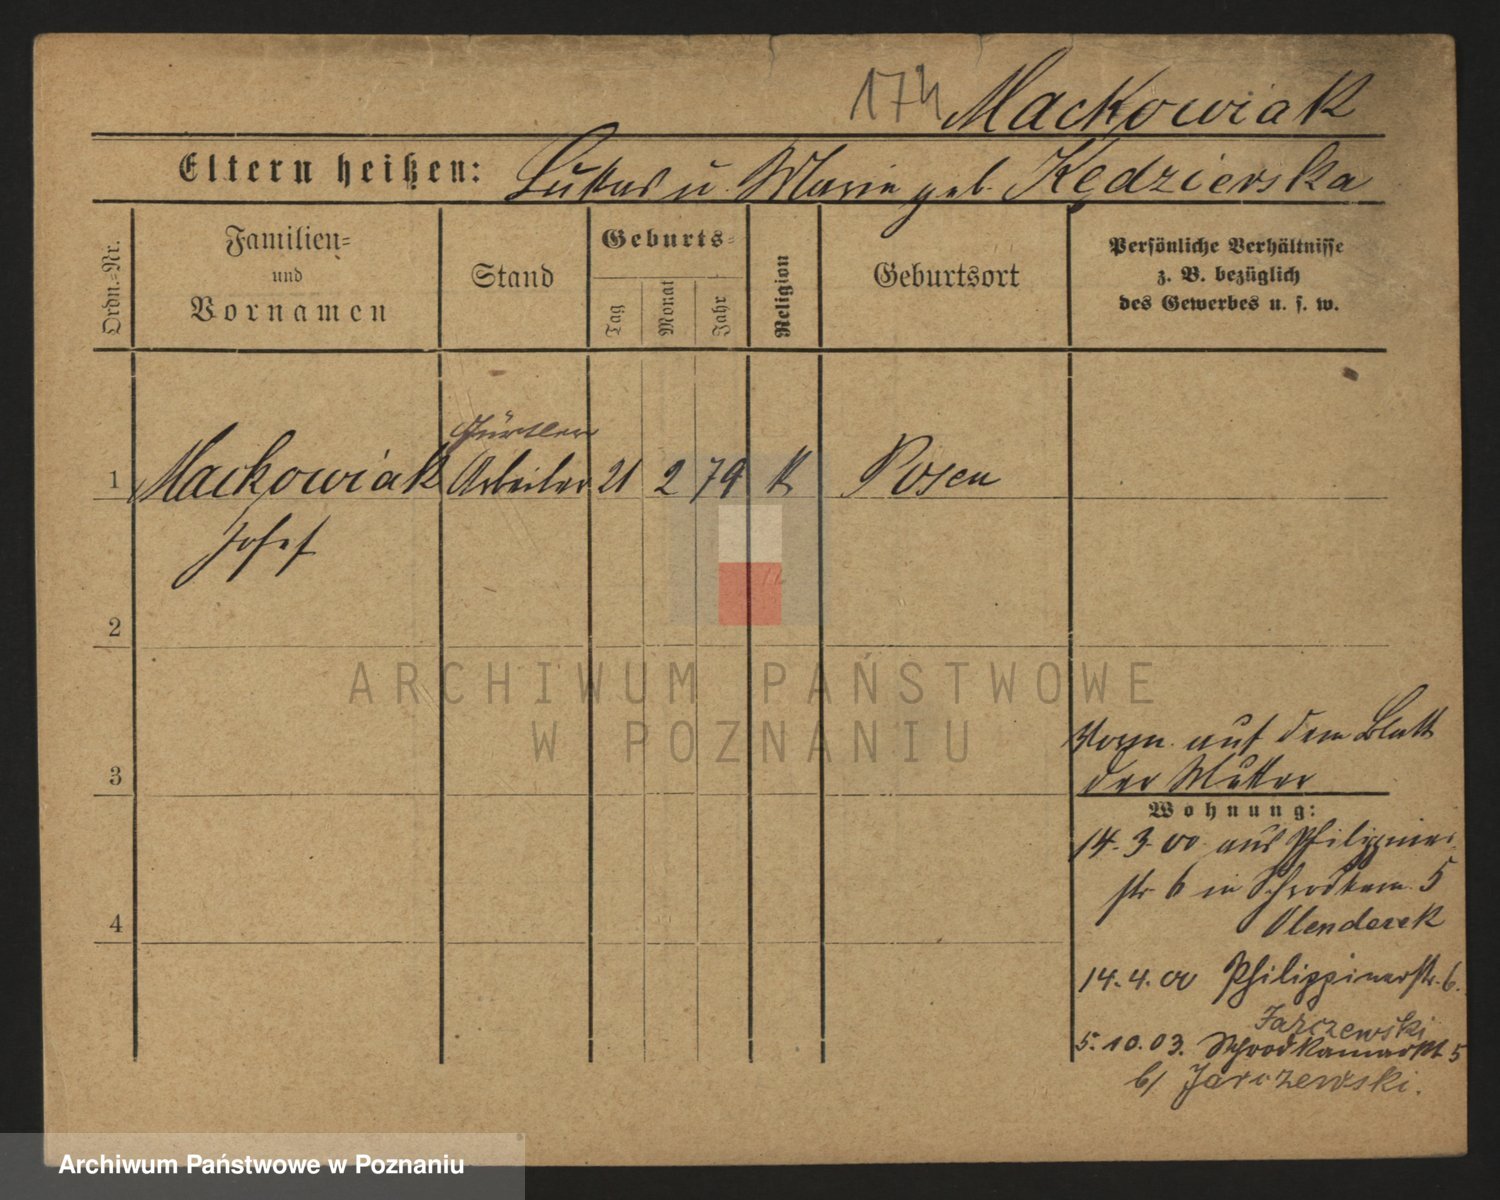 174 Mackowiak
Eltern heißen: Lukas u. Marie geb. Kędzierska
Ordn.-Nr.
Familien-
und
Vornamen
Stand
Geburts-
Tag
Monat
Jahr
Religion
Geburtsort
Persönliche Verhältnisse
z. B. bezüglich
des Gewerbes u. s. w.
Gürtler
1 Mackowiak Arbeiter 21 2 79 K Posen
Josef
2
3
4
ARCHIWUM PAŃSTWOWE
W POZNANIU
auf dem Blatt
der Mutter
Wohnung:
14. 3. 00 aus Philippiner
str 6 in Schrodkam. 5
Olenderek
14. 4. 00 Philippinerstr. 6.
Jarczewski
5. 10. 03. Schrodkamarkt 5
b/ Jarczewski.
Archiwum Państwowe w Poznaniu